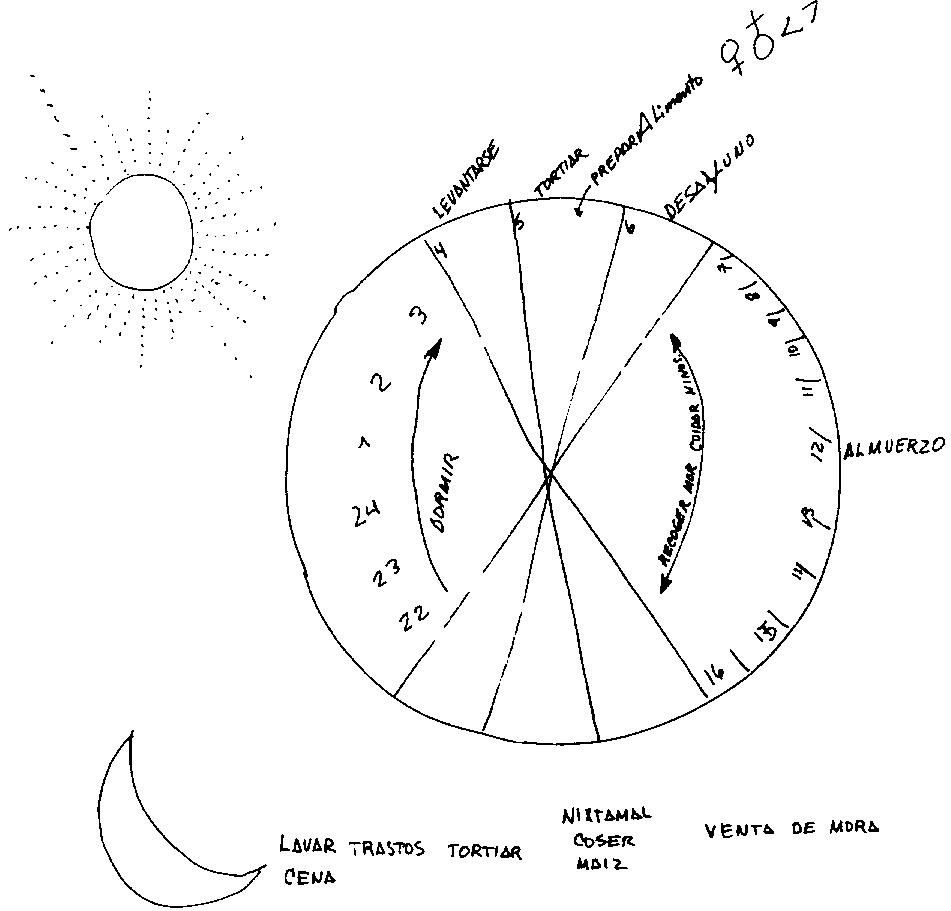 LEVANTARSE
TORTIAR
PREPARA Alimento
DESAYUNO
4
5
6
7
8
9
10
11
12
ALMUERZO
13
14
15
16
RECOGER MOR CUIDAR NIÑOS
3
2
1
24
23
22
DORMIR
LAVAR TRASTOS TORTIAR
CENA
NIXTAMAL
COSER
MAIZ
VENTA DE MORA